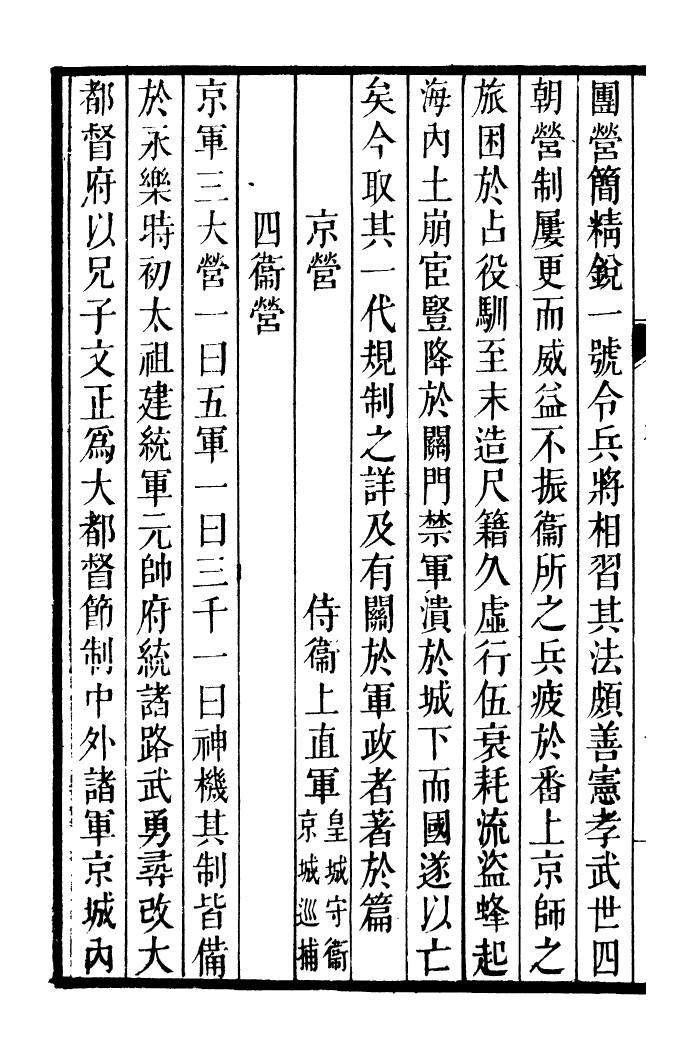 團營簡精銳一號令兵將相習其法頗善憲孝武世四
朝營制屢更而威益不振衞所之兵疲於番上京師之
旅困於占役馴至末造尺籍久虛行伍衰耗流盜蜂起
海內土崩宦豎降於關門禁軍潰於城下而國遂以亡
矣今取其一代規制之詳及有關於軍政者著於篇
京營 侍衞上直軍 皇城守衞 京城巡捕
四衞營
京軍三大營一曰五軍一曰三千一曰神機其制皆備
於永樂時初太祖建統軍元帥府統諸路武勇尋改大
都督府以兄子文正爲大都督節制中外諸軍京城內